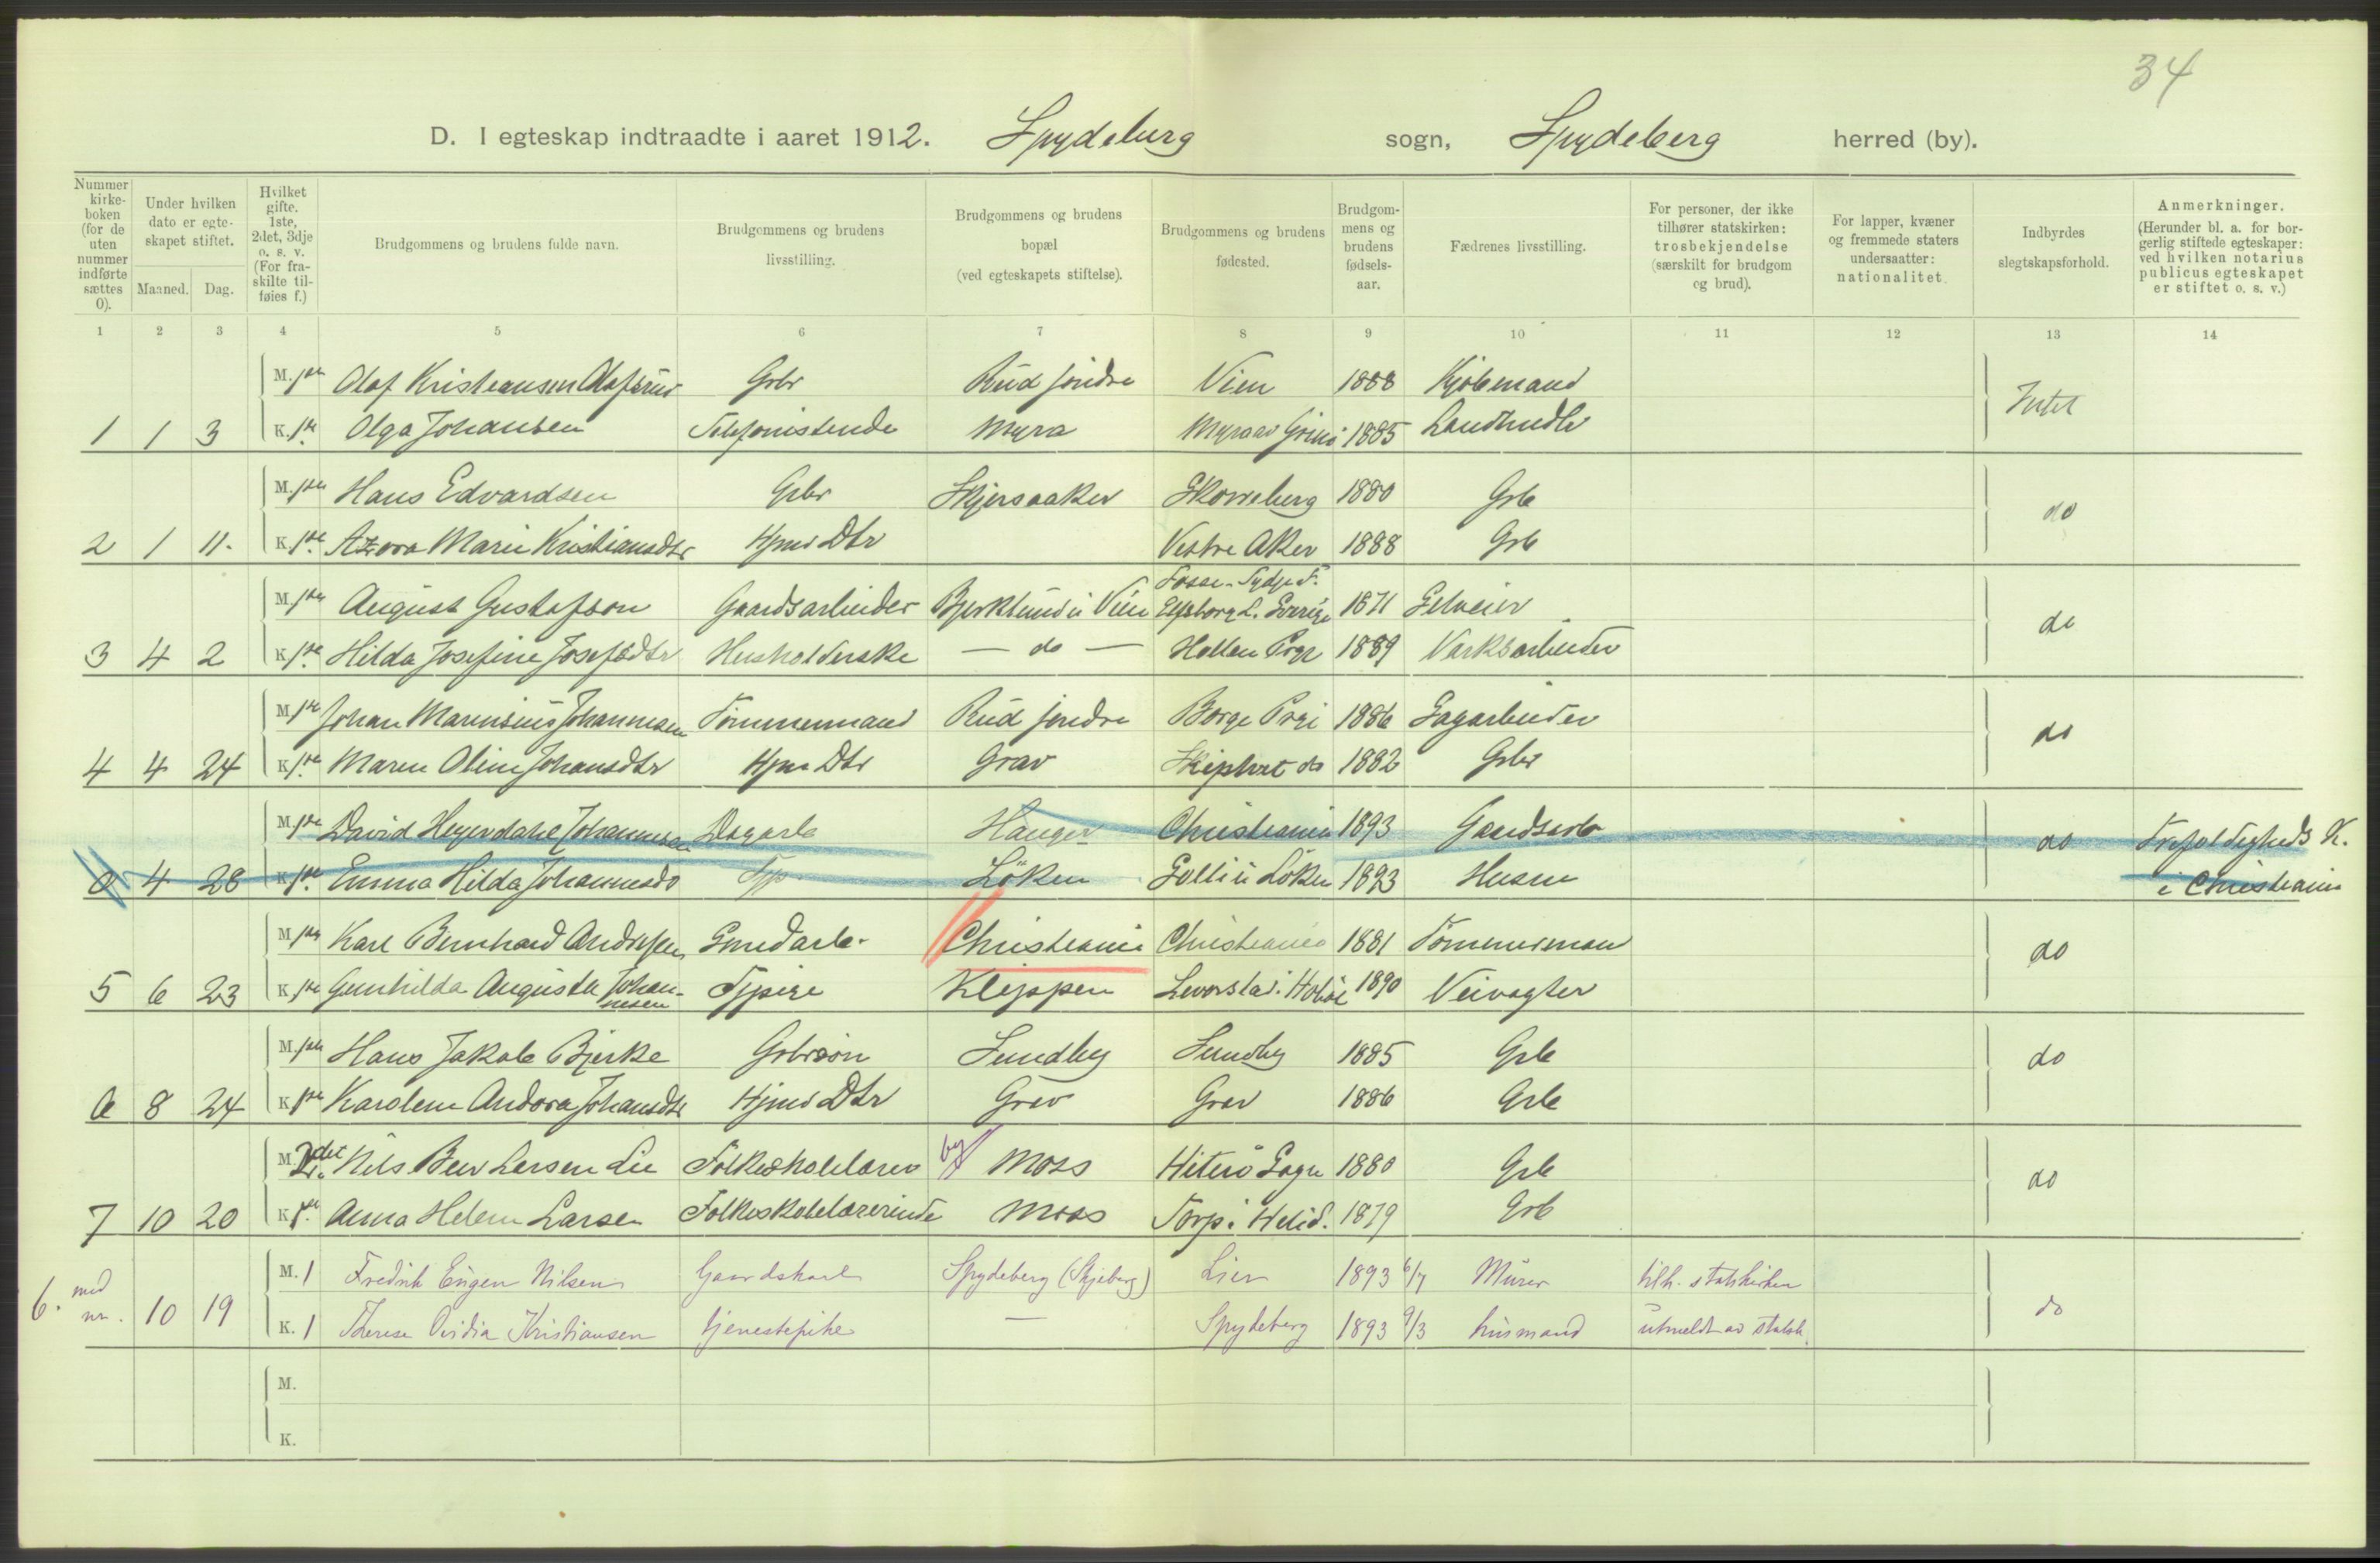 34
D. I egteskap indtraadte i aaret 1912. Spydeberg sogn, Spydeberg herred (by).
Nummer kirke- boken (for de uten nummer indførte sættes 0).
Under hvilken dato er egte- skapet stiftet.
Maaned. Dag.
Hvilket gifte. 1ste, 2det, 3dje o. s. v. (For fra- skilte til- føies f.)
Brudgommens og brudens fulde navn.
Brudgommens og brudens livsstilling.
Brudgommens og brudens bopæl (ved egteskapets stiftelse).
Brudgommens og brudens fødested.
Brudgom- mens og brudens fødsels- aar.
Fædrenes livsstilling.
For personer, der ikke tilhører statskirken: trosbekjendelse (særskilt for brudgom og brud).
For lapper, kvæner og fremmede staters undersaatter: nationalitet.
Indbyrdes slegtskapsforhold.
Anmerkninger. (Herunder bl. a. for bor- gerlig stiftede egteskaper: ved hvilken notarius publicus egteskapet er stiftet o. s. v.)
1 2 3 4 5 6 7 8 9 10 11 12 13 14
M. 1ste Olaf Kristiansen Gbr Rud søndre Vien 1888 Kjøbmand Intet
1 1 3 K. 1ste Olga Johansen Telefonistinde Myra Myra av 1885 Landhandler
M. 1ste Hans Edvardsen Gbr Skjersaaker Skonneberg 1880 Grb do
2 1 11. K. 1ste Azora Marie Kristiansdtr Hjmv Dtr Vestre Aker 1888 Grb
M. 1ste August Gustafson Gaardsarbeider Bjerklund i Vien Elfsborg L. Sverige 1871 Selveier do
3 4 2 K. 1ste Hilda Josefine Josefsdtr Husholderske — do — 1889 Værksarbeider
M. 1ste Johan Marensius Johannesen Tømmermand Rud søndre Borge Prgj 1886 Sagarbeider do
4 4 24 K. 1ste Maren Oline Johansdtr Hjmv Dtr Grav Skiptvet do 1882 Gbr
M. 1ste David Heyerdahl Johannesen Dagarb Hauger Christiania 1893 Gaardsarb do Trefoldigheds K.
0 4 28 K. 1ste Emma Hilda Johannesd Tjp Løken Løken 1893 Husm i Christiania
M. 1ste Karl Bernhard Andresen Smedarb. Christiania Christiania 1881 Tømmerman do
5 6 23 K. 1ste Gunhilda Augusta Johan- nesen Tjpige Kleppen Levorsta i Hobøl 1890 Veivogter
M. 1ste Hans Jakob Bjerke Gbrsøn Sundby Sundby 1885 Grb do
6 8 24 K. 1ste Karolene Andora Johansdtr Hjmv Dtr Grav Grav 1886 Grb
M. 2det Nils Larsen Lie Folkeskolelærer by Moss Hiterø Sogn 1880 Grb do
7 10 20 K. 1ste Anna Helene Larsen Folkeskolelærerinde Moss Torp i 1879 Grb
M. 1 Fredrik Eugen Nilsen Gaardskarl Spydeberg (Skjeberg) Lier 1893 6/7 Murer tilh. statskirken
6. med nr. 10 19 K. 1 Therese Ovidia Kristiansen tjenestepike — Spydeberg 1893 9/3 husmand utmeldt av statsk. do
M.
K.